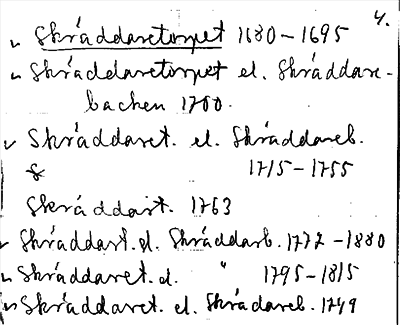 4.
Skräddaretorpet 1680-1695
Skräddaretorpet el. Skräddare-
backen 1700.
Skräddaret. el. Skräddareb.
& 1715-1755
Skräddart. 1763
Skräddart. el. Skräddarb. 1772-1880
Skräddaret. el. " 1795-1815
Skräddaret. el. Skräddareb. 1749